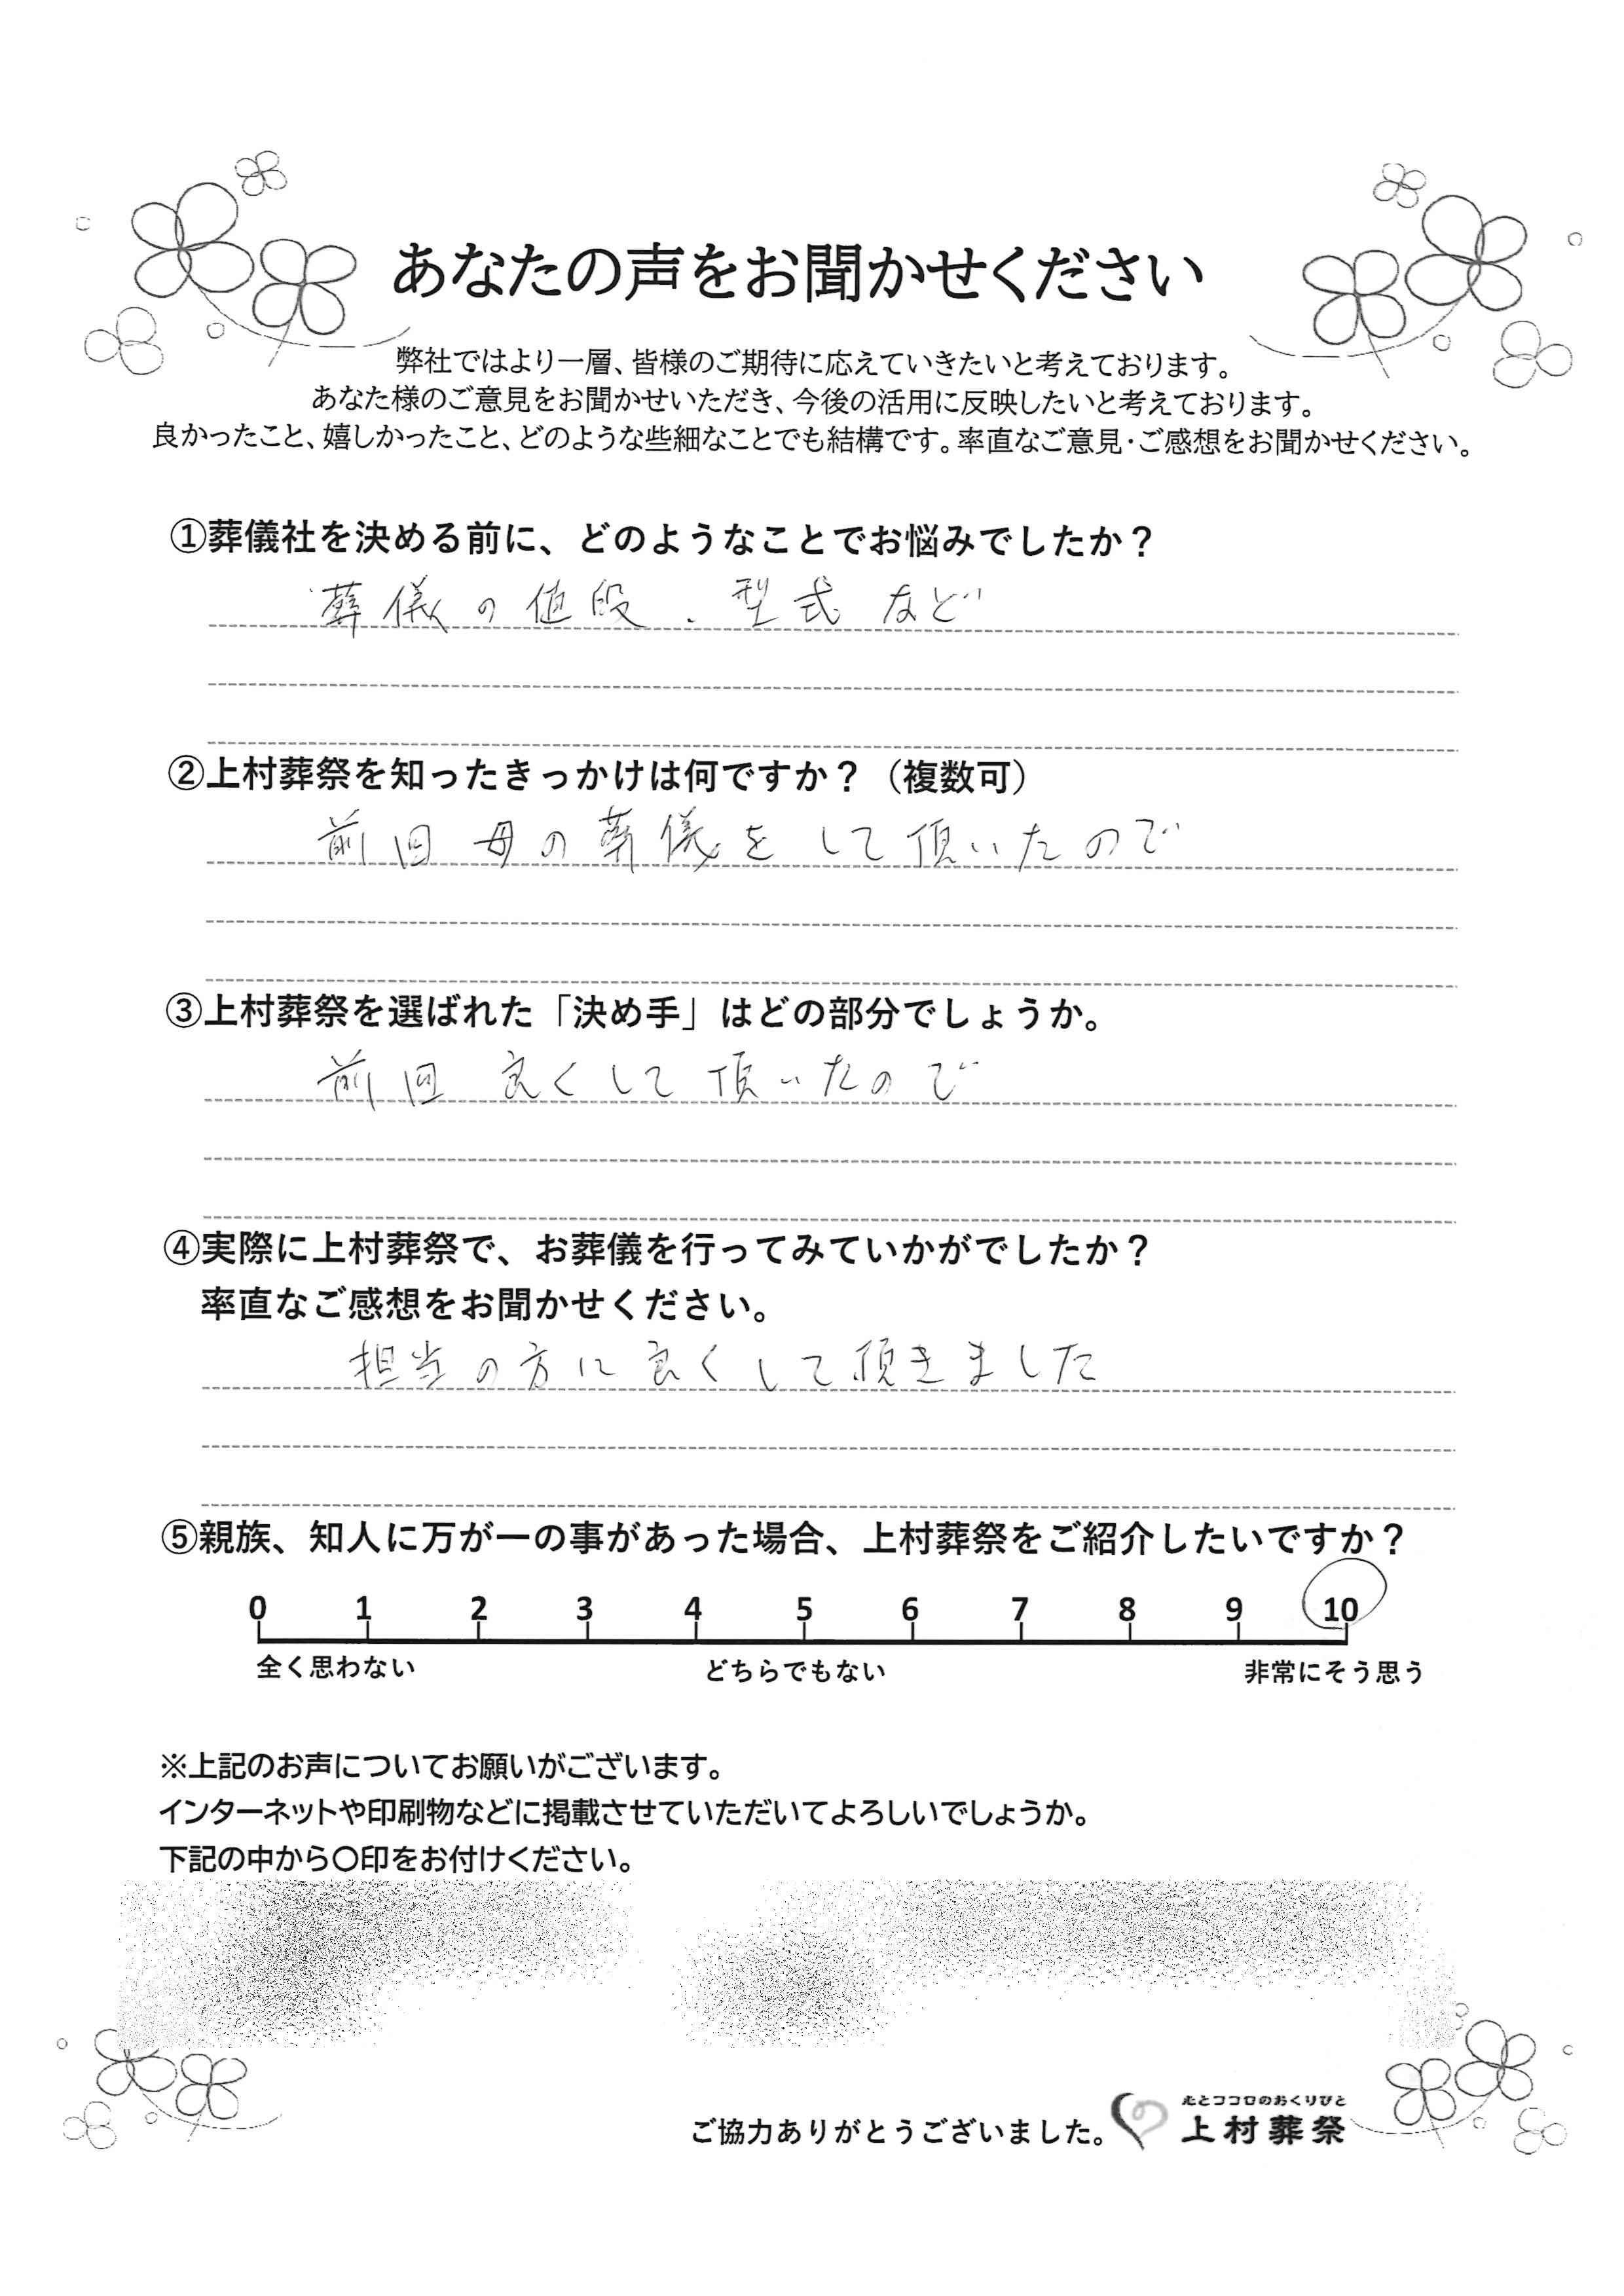 あなたの声をお聞かせください
弊社ではより一層、皆様のご期待に応えていきたいと考えております。
あなた様のご意見をお聞かせいただき、今後の活用に反映したいと考えております。
良かったこと、嬉しかったこと、どのような些細なことでも結構です。率直なご意見・ご感想をお聞かせください。
①葬儀社を決める前に、どのようなことでお悩みでしたか？
葬儀の値段、型式 など
②上村葬祭を知ったきっかけは何ですか？（複数可）
前回 母の葬儀をして頂いたので
③上村葬祭を選ばれた「決め手」はどの部分でしょうか。
前回 良くして頂いたので
④実際に上村葬祭で、お葬儀を行ってみていかがでしたか？
率直なご感想をお聞かせください。
担当の方に良くして頂きました
⑤親族、知人に万が一の事があった場合、上村葬祭をご紹介したいですか？
0 1 2 3 4 5 6 7 8 9 10
全く思わない どちらでもない 非常にそう思う
※上記のお声についてお願いがございます。
インターネットや印刷物などに掲載させていただいてよろしいでしょうか。
下記の中から〇印をお付けください。
心とココロのおくりびと
ご協力ありがとうございました。 上村葬祭